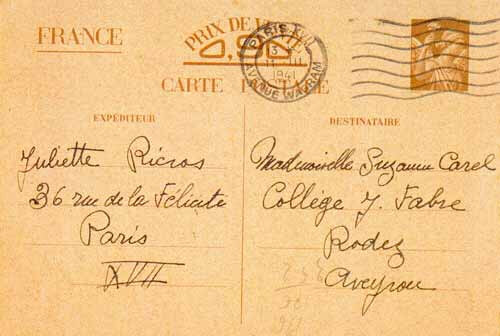 FRANCE
PRIX DE VENTE
0,90
CARTE POSTALE
PARIS XVII
1941
AVENUE WAGRAM
EXPÉDITEUR
Juliette Ricros
36 rue de la Félicité
Paris
XVII
DESTINATAIRE
Mademoiselle Suzanne Carel
Collège J. Fabre
Rodez
Aveyron